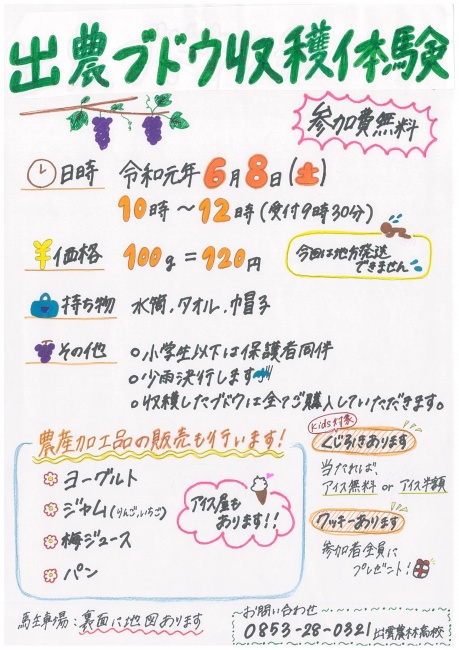 出農ブドウ収穫体験
参加費無料
日時 令和元年6月8日(土)
10時～12時(受付9時30分)
¥価格 100g=120円
今回は地方発送
できません
持ち物 水筒、タオル、帽子
その他 ○小学生以下は保護者同伴
○少雨決行します
○収穫したブドウは全てご購入していただきます。
農産加工品の販売も行います!
ヨーグルト
ジャム(りんご,いちご)
梅ジュース
パン
アイス屋も
あります!!
Kids対象
くじ引きあります
当たれば、
アイス無料 or アイス半額
クッキーあります
参加者全員に
プレゼント!
駐車場:裏面に地図あります
お問い合わせ
0853-28-0321 出雲農林高校